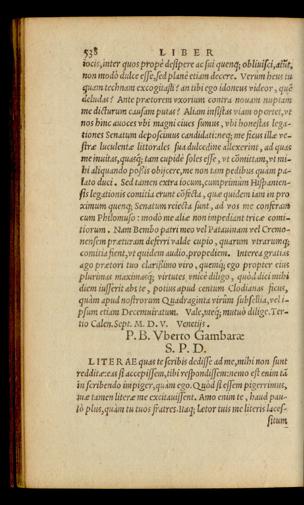 538 LIBER
iocis, inter quos propè desipere ac sui quenq; obliuisci, aiũt,
non modò dulce esse, sed planè etiam decere. Verùm heus tu
quam technam excogitasti? an tibi ego idoneus videor, quẽ
deludas? Ante prætorem vxorium contra nouam nuptam
me dicturum causam putas? Aliam insistas viam oportet, vt
nos hinc auoces vbi magni ciues sumus, vbi honestas lega-
tiones Senatum deposcimus candidati: neq; me ficus illæ ve-
stræ luculentæ littorales sua dulcedine allexerint, ad quas
me inuitas, quasq; tam cupidè soles esse, vt cõmittam, vt mi-
hi aliquando possis obijcere, me non tam pedibus quàm pa-
lato duci. Sed tamen extra iocum, cumprimùm Hispanien-
sis legationis comitia erunt cõfecta, quæ quidem iam in pro
ximum quenq; Senatum reiecta sunt, ad vos me conferam
cum Philomuso: modò me aliæ non impediant tricæ comi-
tiorum. Nam Bembo patri meo vel Patauinam vel Cremo-
nensem præturam deferri valde cupio, quarum vtrarumq;
comitia fient, vt quidem audio, propediem. Interea gratias
ago prætori tuo clarissimo viro, quemq; ego propter eius
plurimas maximasq; virtutes vnicè diligo, quòd dici mihi
diem iusserit abs te, potius apud centum Clodianas ficus,
quàm apud nostrorum Quadraginta virûm subsellia, vel i-
psum etiam Decemuiratum. Vale, meq; mutuò dilige. Ter-
tio Calen. Sept. M. D. V. Venetijs.
P. B. Vberto Gambaræ
S. P. D.
LITERAE quas te scribis dedisse ad me, mihi non sunt
redditæ: eas si accepissem, tibi respondissem: nemo est enim tã
in scribendo impiger, quàm ego. Quòd si essem pigerrimus,
tuæ tamen literæ me excitauissent. Amo enim te, haud pau-
lò plus, quàm tu tuos fratres. Itaq; lætor tuis me literis laces-
situm